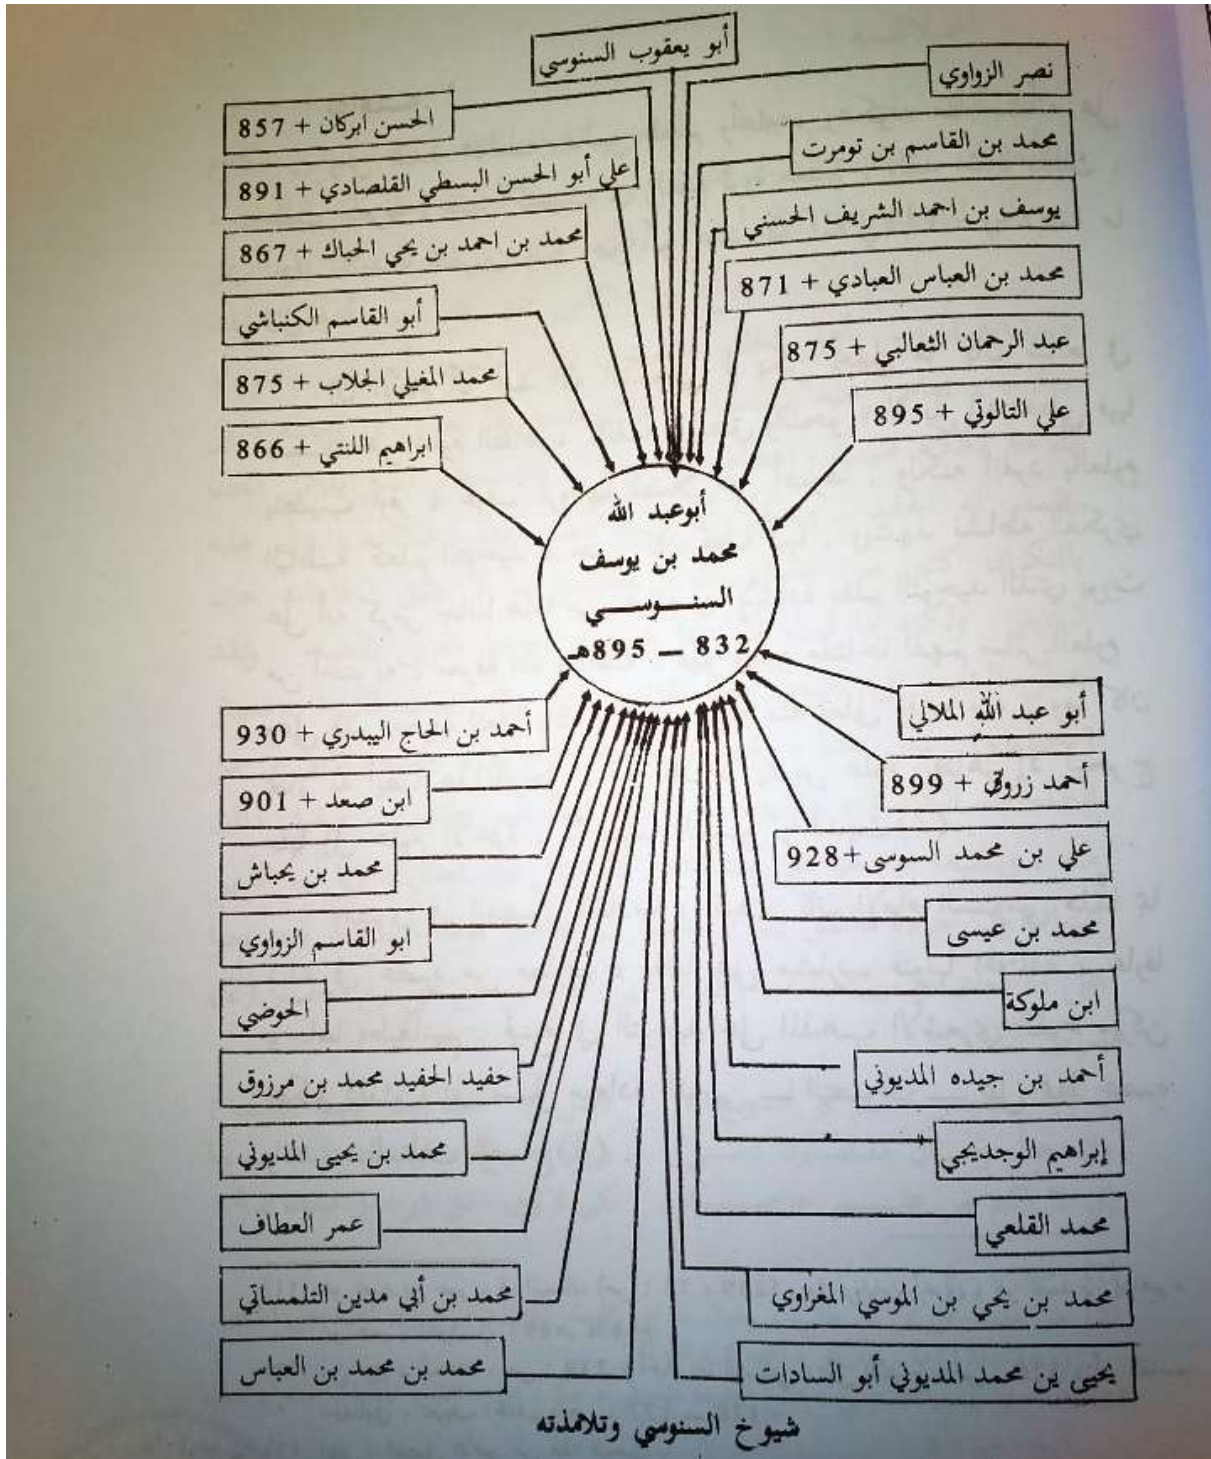 أبو يعقوب السنوسي
نصر الزواوي
محمد بن القاسم بن تومرت
يوسف بن احمد الشريف الحسني
محمد بن العباس العبادي + 871
عبد الرحمان الثعالبي + 875
علي التالوتي + 895
الحسن ابركان + 857
علي أبو الحسن البسطي القلصادي + 891
محمد بن احمد بن يحي الحباك + 867
أبو القاسم الكنباشي
محمد المغيلي الجلاب + 875
ابراهيم اللنتي + 866
أبوعبد الله
محمد بن يوسف
السنوسي
832 — 895هـ
أبو عبد الله الملالي
أحمد زروق + 899
علي بن محمد السوسى+928
محمد بن عيسى
ابن ملوكة
أحمد بن جيده المديوني
إبراهيم الوجديجي
محمد القلعي
محمد بن يحي بن الموسي المغراوي
يحيى بن محمد المديوني أبو السادات
أحمد بن الحاج اليبدري + 930
ابن صعد + 901
محمد بن يحباش
ابو القاسم الزواوي
الحوضي
حفيد الحفيد محمد بن مرزوق
محمد بن يحيى المديوني
عمر العطاف
محمد بن أبي مدين التلمساتي
محمد بن محمد بن العباس
شيوخ السنوسي وتلامذته